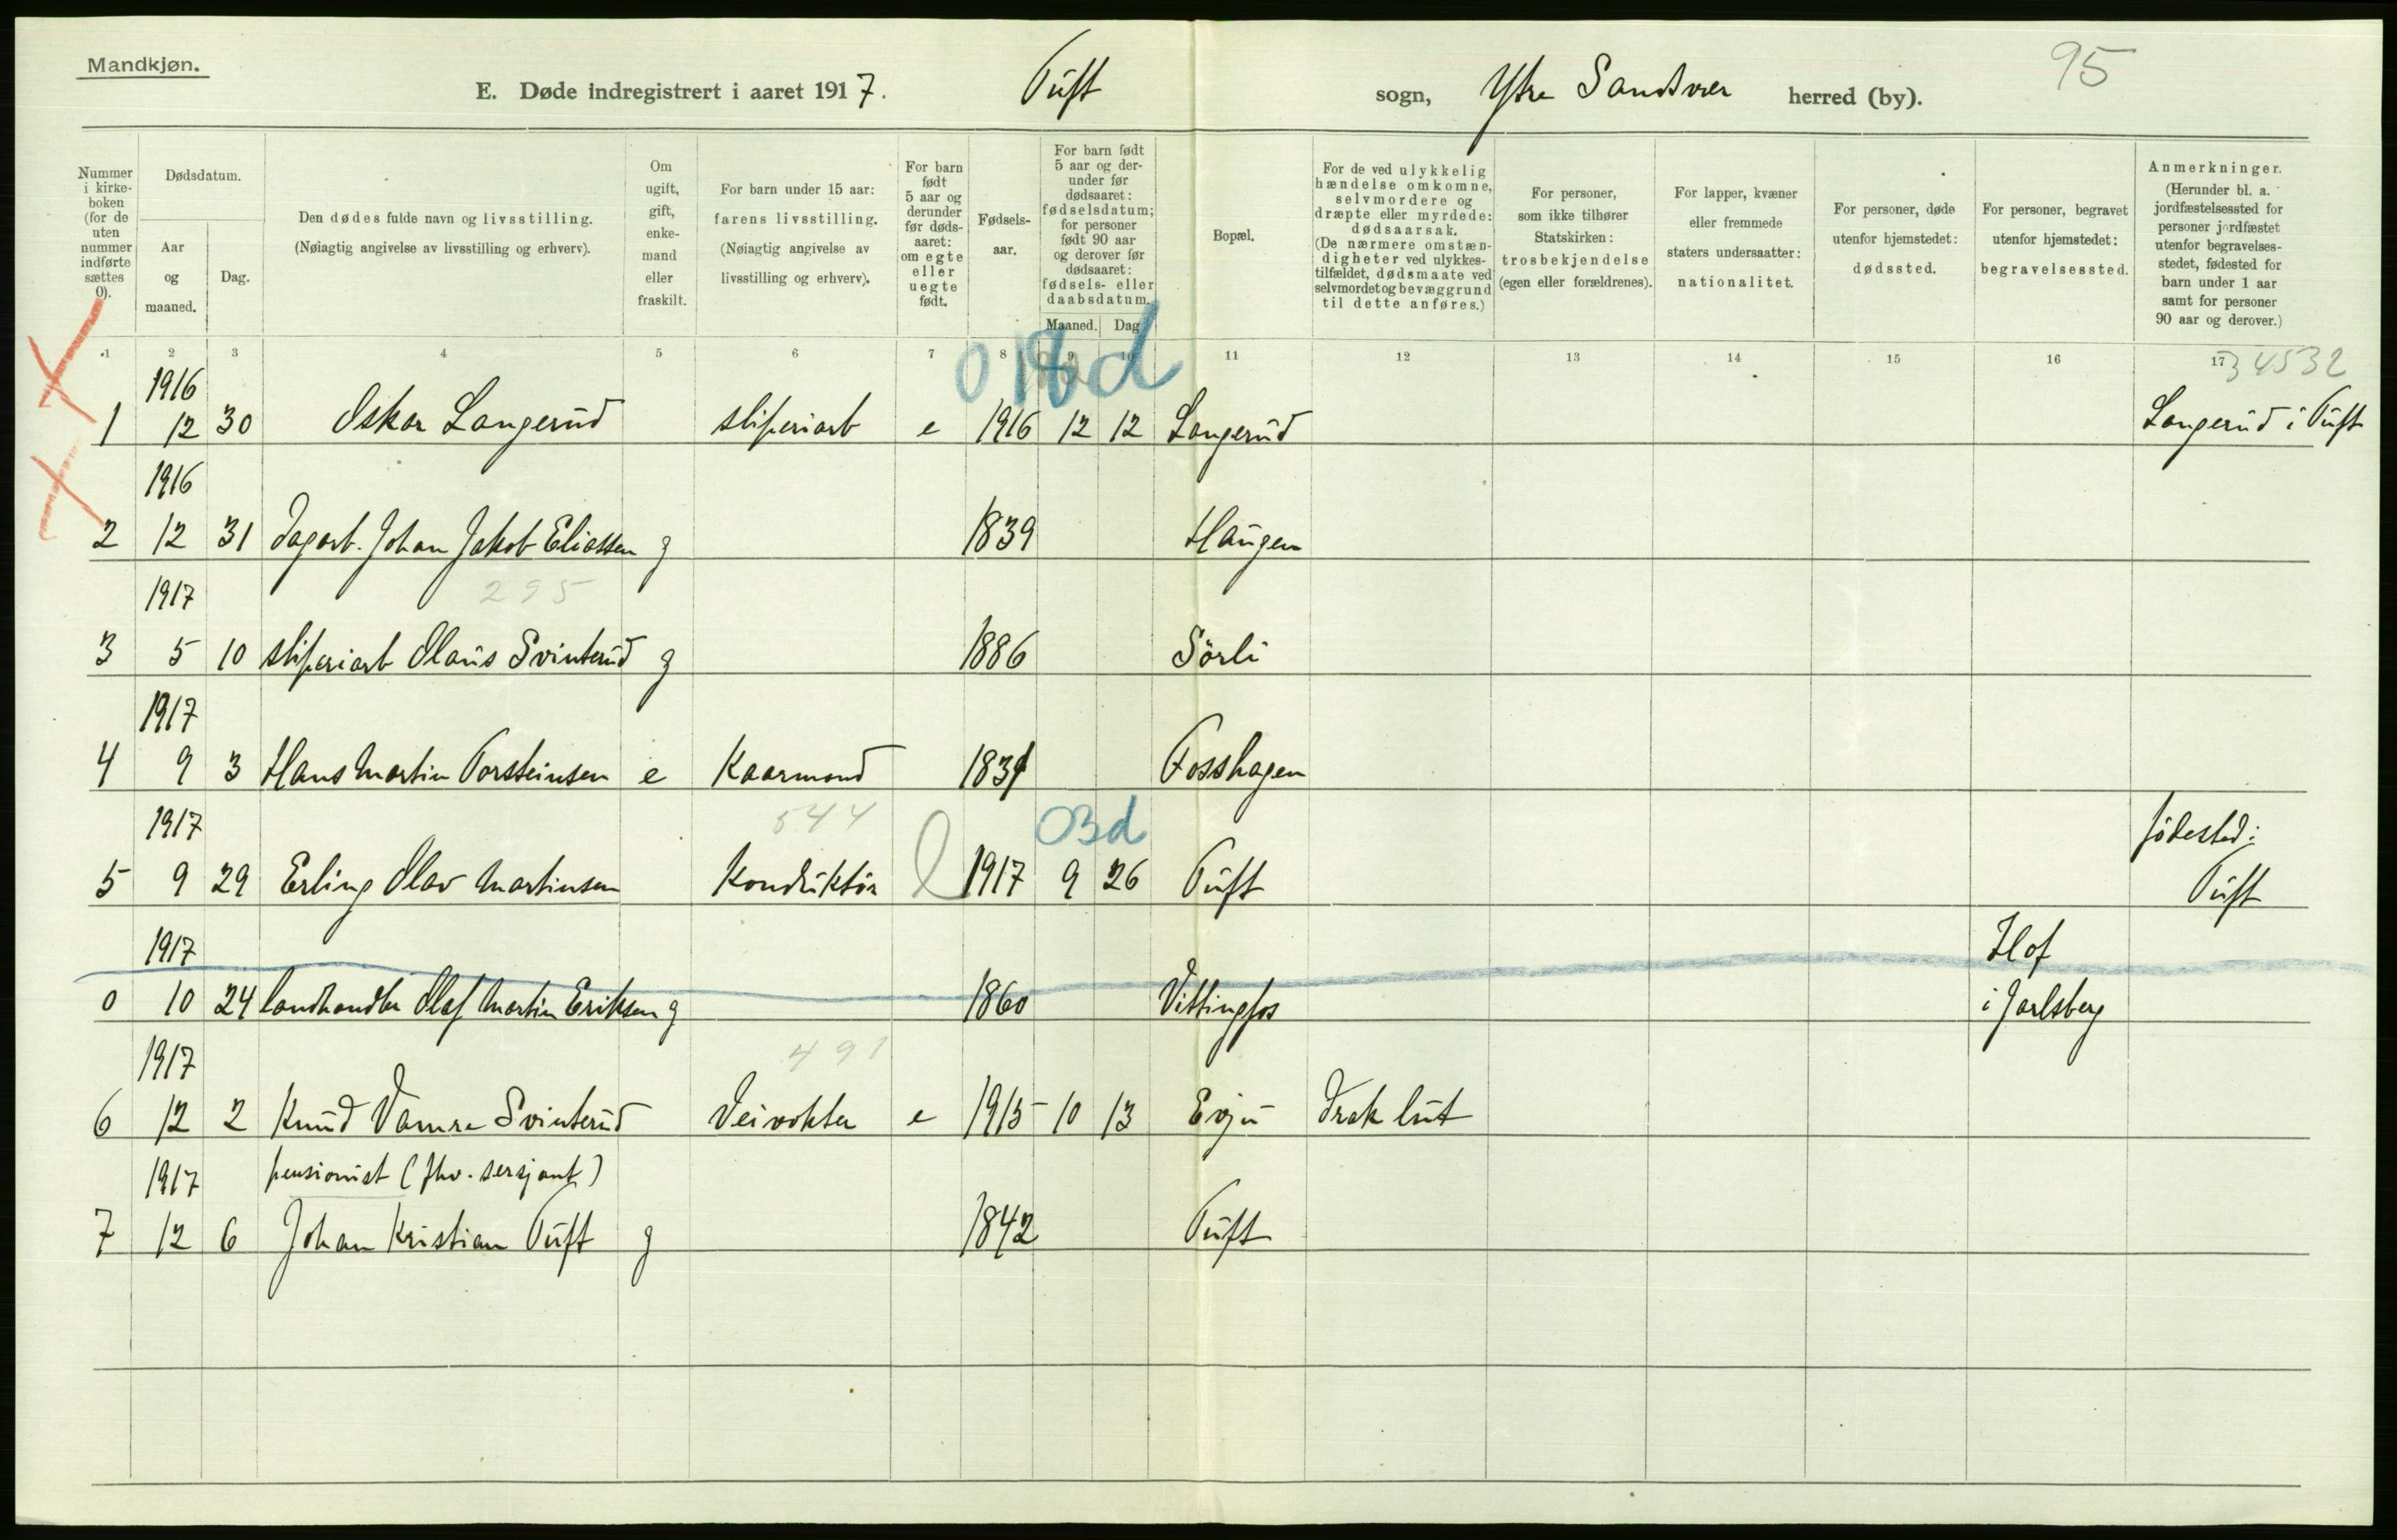 Mandkjøn.
95
E. Døde indregistrert i aaret 1917. Tuft sogn, Ytre Sandsver herred (by).
Nummer i kirke-boken (for de uten nummer indførte sættes 0).
Dødsdatum.
Aar og maaned.
Dag.
Den dødes fulde navn og livsstilling.
(Nøiagtig angivelse av livsstilling og erhverv).
Om ugift, gift, enke-mand eller fraskilt.
For barn under 15 aar: farens livsstilling.
(Nøiagtig angivelse av livsstilling og erhverv).
For barn født 5 aar og derunder før døds-aaret: om egte eller uegte født.
Fødsels-aar.
For barn født 5 aar og der-under før dødsaaret: fødselsdatum; for personer født 90 aar og derover før dødsaaret: fødsels- eller daabsdatum.
Maaned. Dag
Bopæl.
For de ved ulykkelig hændelse omkomne, selvmordere og dræpte eller myrdede: dødsaarsak.
(De nærmere omstæn-digheter ved ulykkes-tilfældet, dødsmaate ved selvmordet og bevæggrund til dette anføres.)
For personer, som ikke tilhører Statskirken: trosbekjendelse (egen eller forældrenes).
For lapper, kvæner eller fremmede staters undersaatter: nationalitet.
For personer, døde utenfor hjemstedet: dødssted.
For personer, begravet utenfor hjemstedet: begravelsessted.
Anmerkninger.
(Herunder bl. a. jordfæstelsessted for personer jordfæstet utenfor begravelses-stedet, fødested for barn under 1 aar samt for personer 90 aar og derover.)
1 2 3 4 5 6 7 8 9 10 11 12 13 14 15 16 17
018d
34532
1916
1 12 30 Oskar Langerud sliperiarb e 1916 12 12 Langerud Langerud i Tuft
1916
2 12 31 dagarb. Johan Jakob Eliassen g 1839 Haugen
295
1917
3 5 10 sliperiarb Olaus Svinterud g 1886 Sørli
1917
4 9 3 Hans Martin Torsteinsen e Kaarmand 1831 Fosshagen
1917 544 03d fødested:
5 9 29 Erling Olav Martinsen Konduktør 1917 9 26 Tuft Tuft
1917 Hof
0 10 24 landhandler Olaf Martin Eriksen g 1860 Vittingfos i Jarlsberg
1917 491
6 12 2 Knud Varnra Svinterud Veivokter e 1915 10 13 Evju drak lut
1917 pensionist (fhv. sersjant)
7 12 6 Johan Kristian Tuft g 1842 Tuft